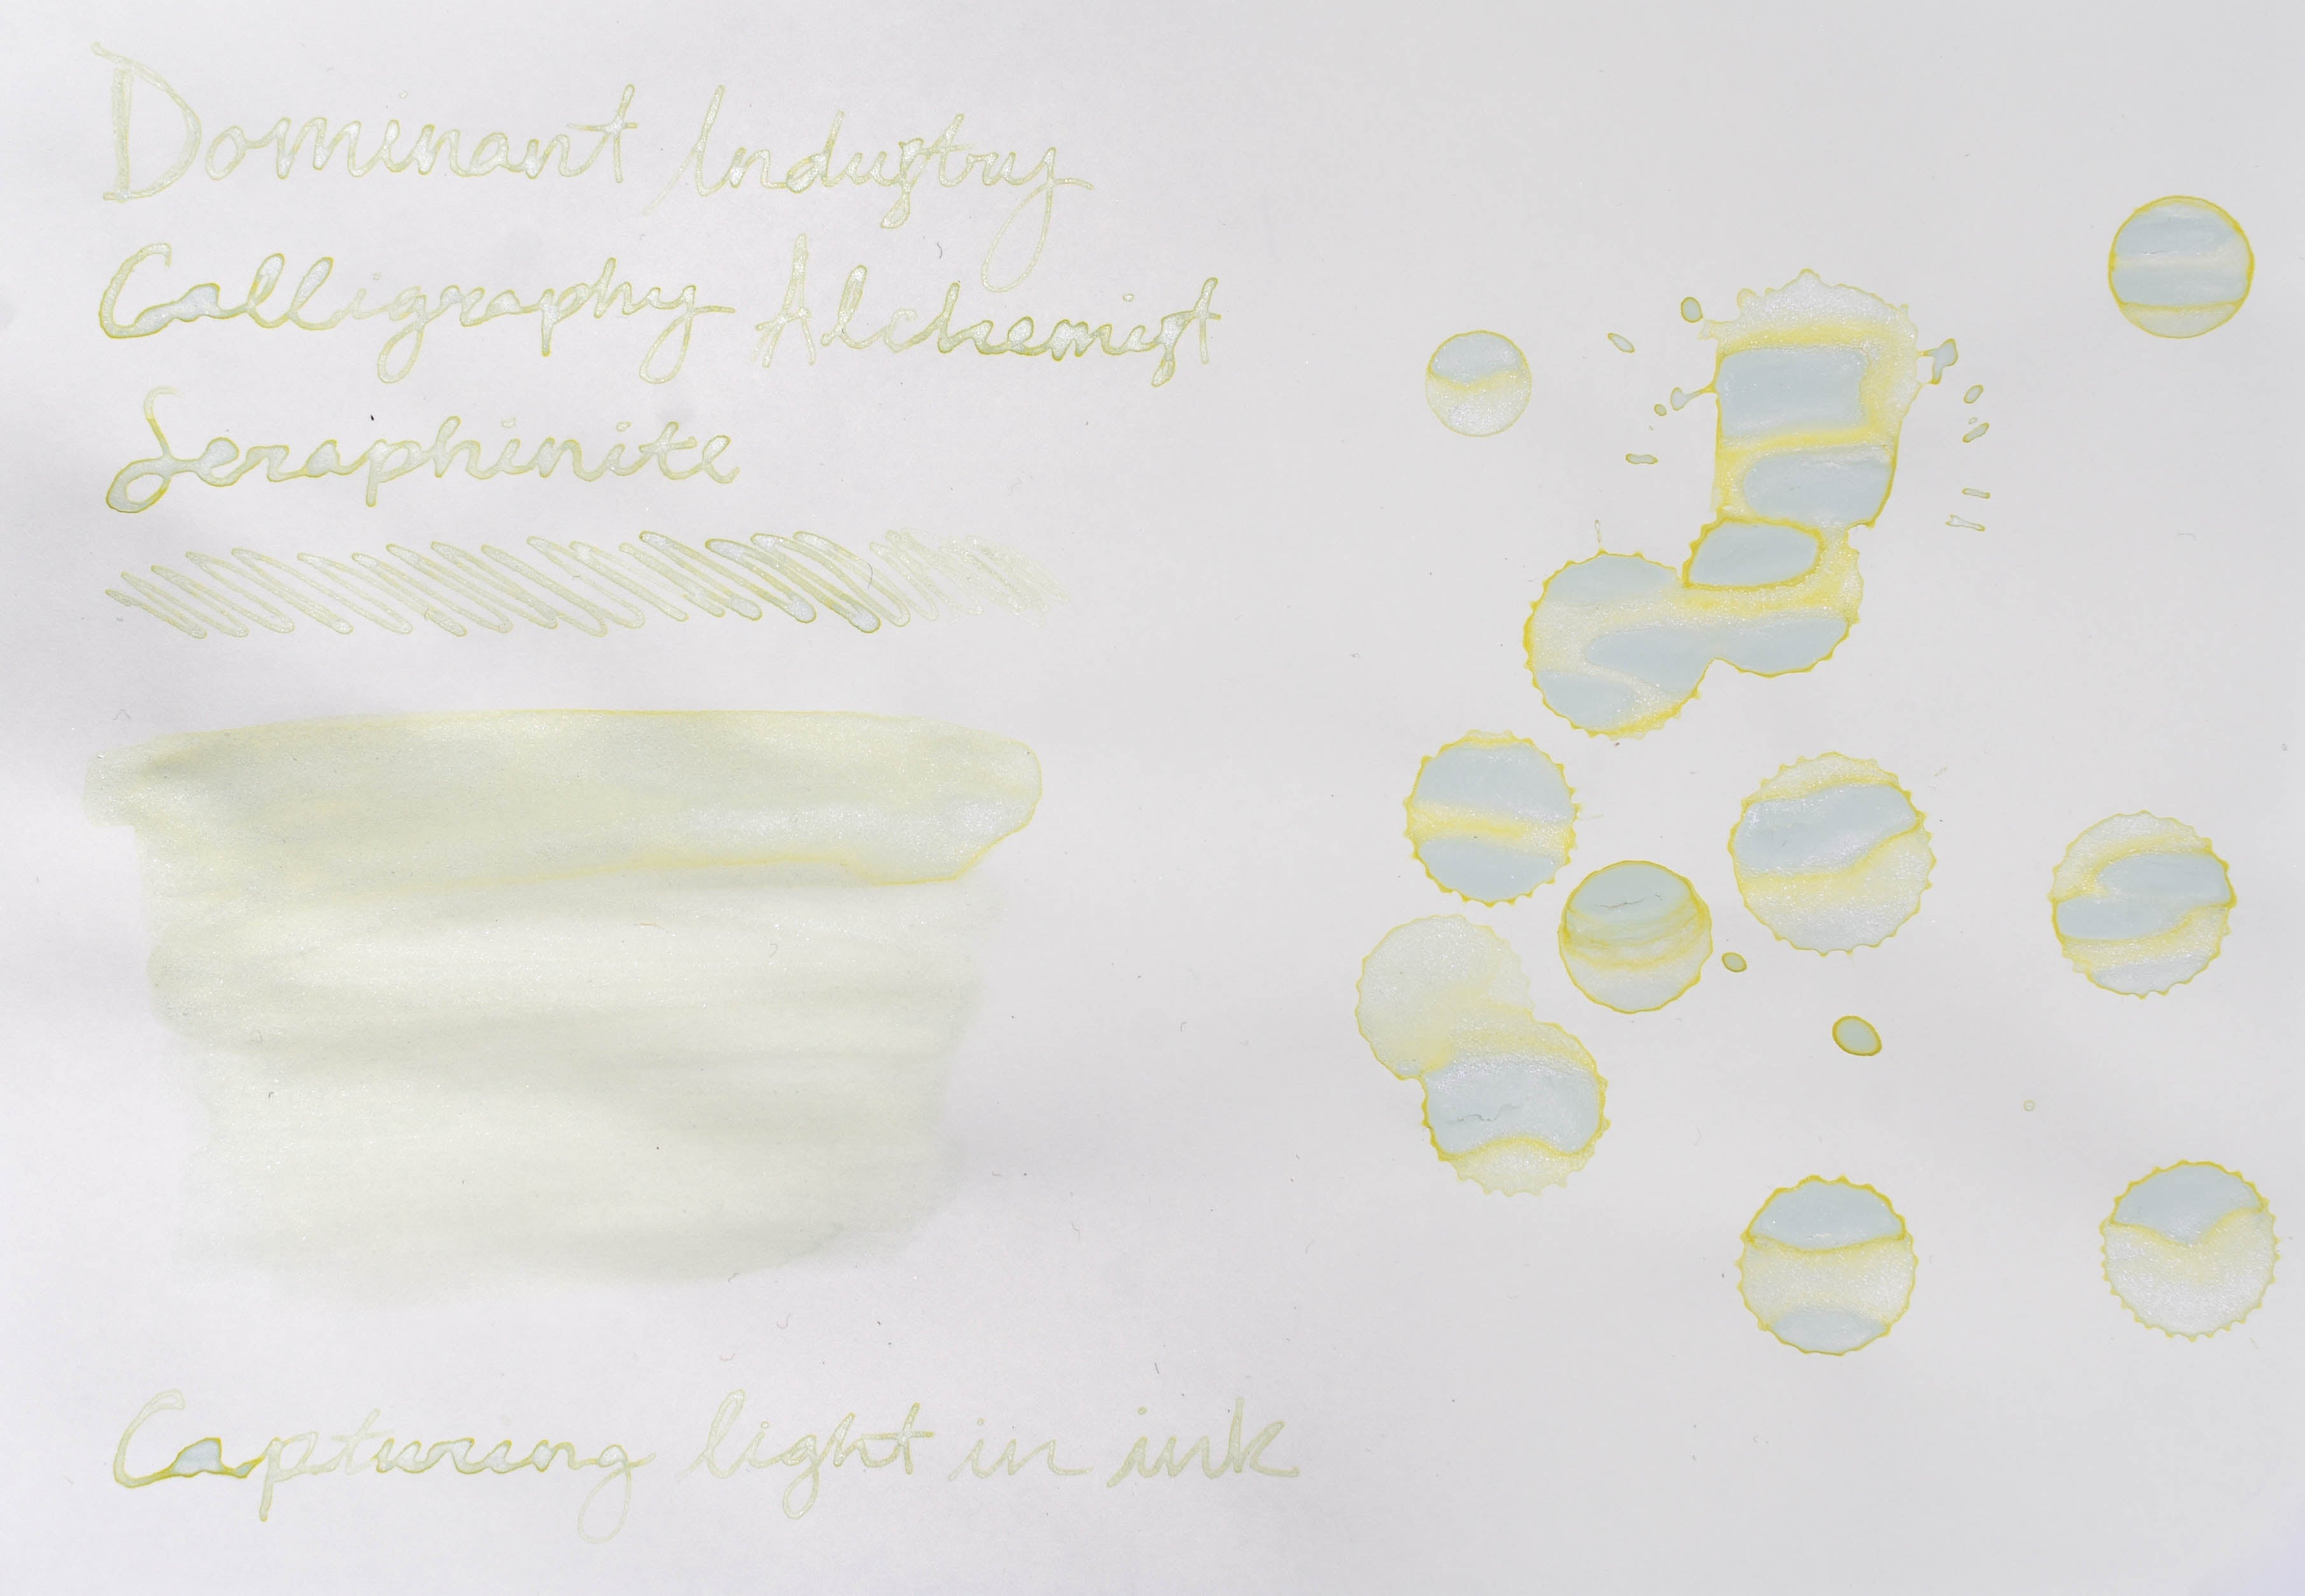 Dominant Industry
Calligraphy Alchemist
Seraphinite
Capturing light in ink